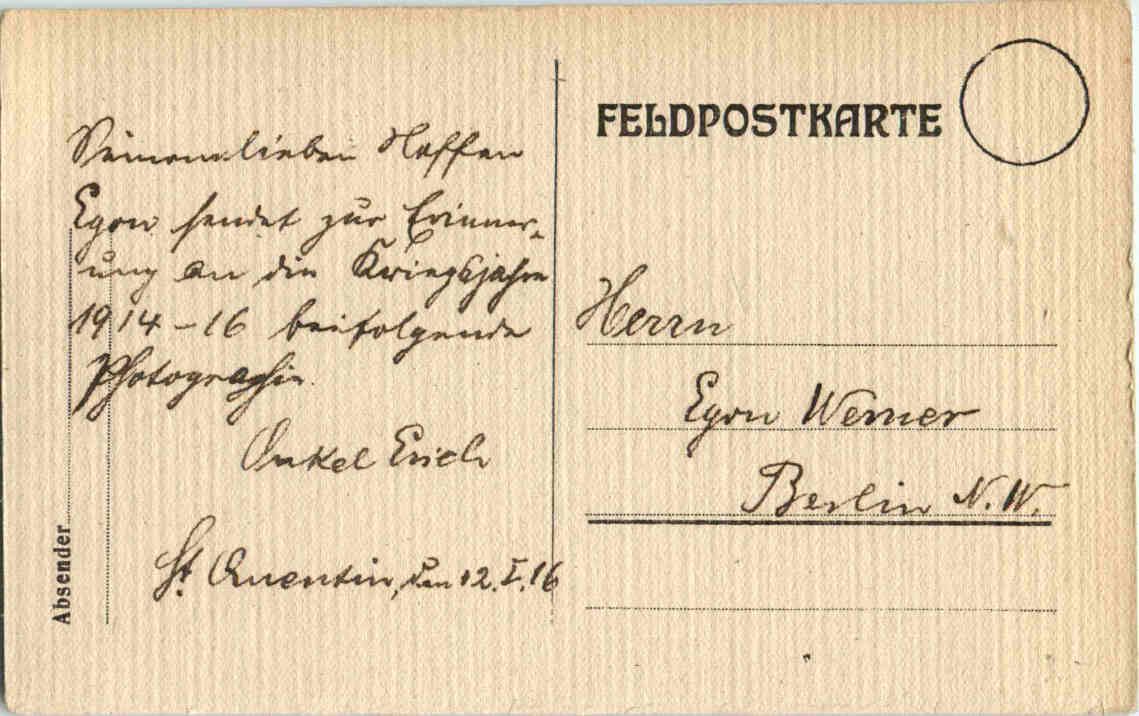 Seinem lieben Neffen
Egon sendet zur Erinner-
ung an die Kriegsjahre
1914-16 beifolgende
Photographie.
Onkel Erich
St. Quentin, den 12.I.16
Absender
FELDPOSTKARTE
Herrn
Egon Werner
Berlin N.W.